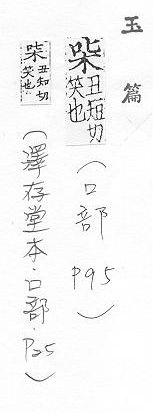 玉篇
㗄丑短切笑也(口部 P95)
㗄丑知切笑也(澤存堂本·口部·P25)